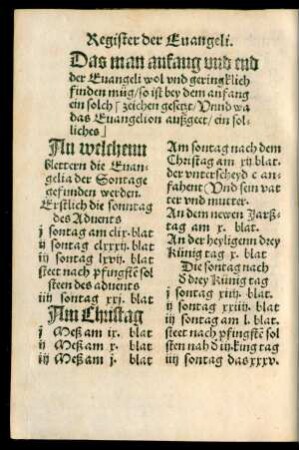 Register der Euangeli.
Das man anfang vnd end
der Euangeli wol vnd geringklich
finden müg / so ist bey dem anfang
ein solch ⌈ zeichen gesetzt / Vnnd wa
das Euangelion außgeet / ein sol-
liches ⌋
An welchenn
blettern die Euan-
gelia der Sontage
gefunden werden.
Erstlich die sonntag
des Aduents
j sontag am clix. blat
ij sontag clxxxij. blat
iij sontag lxvij. blat
steet nach pfingstẽ sol
steen des aduents
iiij sontag xxj. blat
Am Christag
j Meß am ix. blat
ij Meß am x. blat
iij Meß am j. blat
Am sontag nach dem
Christag am xij blat.
der vnterscheyd c an-
fahent (Vnd sein vat
ter vnd mutter.
An dem newen Jarß-
tag am x. blat.
An der heyligenn drey
Künig tag x. blat
Die sontag nach
d drey Künig tag
j sontag xiiij. blat
ij sontag xxiiij. blat
iij sontag am l. blat.
steet nach pfingstẽ sol
sten nah d iij.king tag
iiij sontag das xxxv.